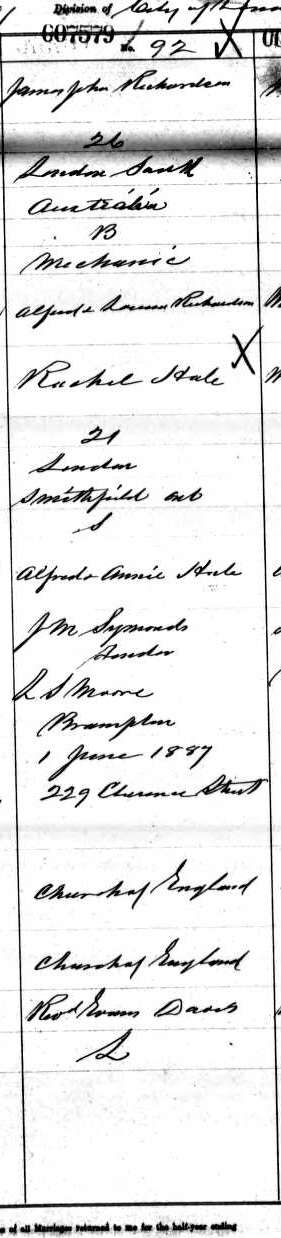 Division of City of London
607579 No. 92 X
James John Richardson
26
London South
Australia
B
Mechanic
Alfred & Louisa Richardson
X
Rachel Hale
21
London
Smithfield Ont
S
Alfred & Annie Hale
J M Symonds
London
L S Moore
Brampton
1 June 1887
229 Clarence Street
Church of England
Church of England
Revd Evans Davis
L
of all Marriages returned to me for the half-year ending